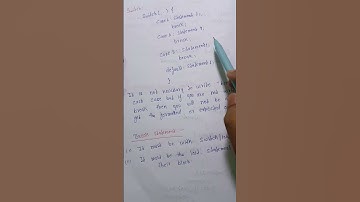 Switch
Switch ( ) {
case 1: statement 1;
break;
case 2: statement 2;
break;
case 3: statement;
break;
default: statement;
}
It is not necessary to write
each case but if you did not
break then you will not be
get the formatted or expected
Break statement
It must be with switch
It must be the last statement
their block.